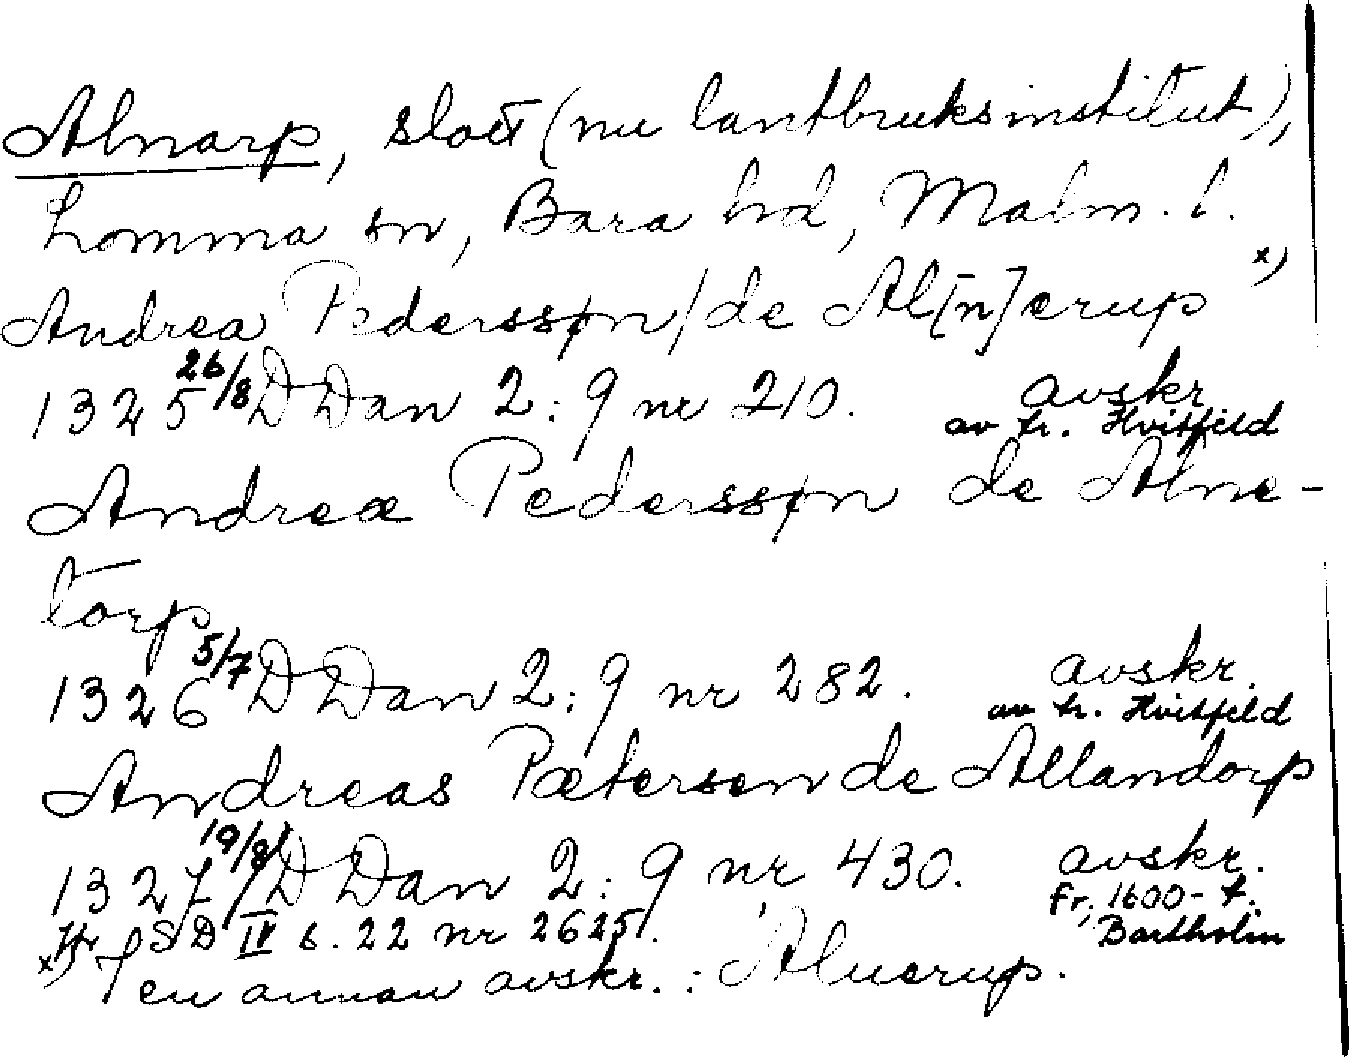 Alnarp, slott (nu lantbruksinstitut),
Lomma sn, Bara hd, Malm. l.
Andrea Pederssøn / de Al[n]erup x)
1325 26/8 DDan 2:9 nr 210. avskr.
av tr. Hvitfeld
Andreæ Pederssøn de Alne-
torp
1326 5/7 DDan 2:9 nr 282. avskr.
av tr. Hvitfeld
Andreas Pætersen de Allandorp
1327 19/8 DDan 2:9 nr 430. avskr.
fr. 1600-t.
Bartholin
Jfr SD IV s. 22 nr 2625.
x) I en annan avskr.: Aluerup.